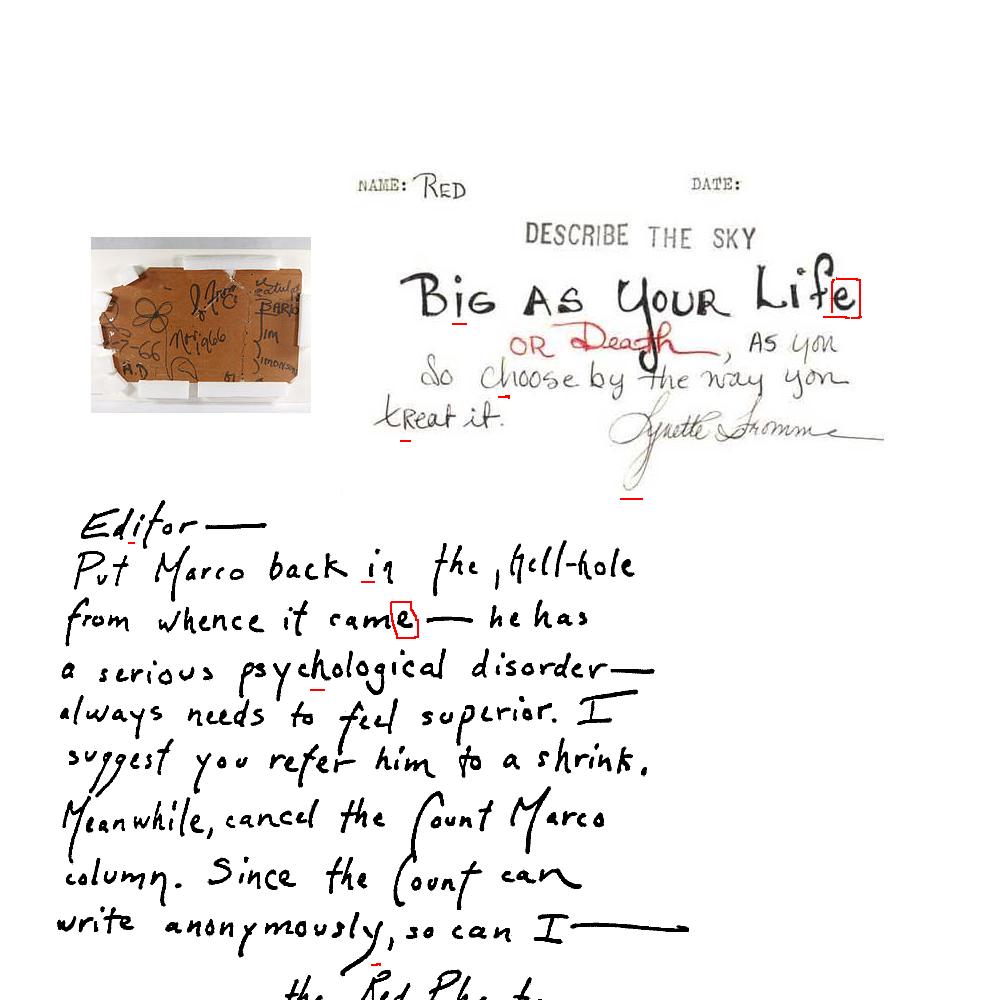 NAME: RED DATE:
DESCRIBE THE SKY
BIG AS YOUR Life
OR Death, AS you
so choose by the way you
tReat it.
Lynette Fromme
Nov 1966
Editor—
Put Marco back in the, hell-hole
from whence it came — he has
a serious psychological disorder—
always needs to feel superior. I
suggest you refer him to a shrink.
Meanwhile, cancel the Count Marco
column. Since the Count can
write anonymously, so can I—
the Red